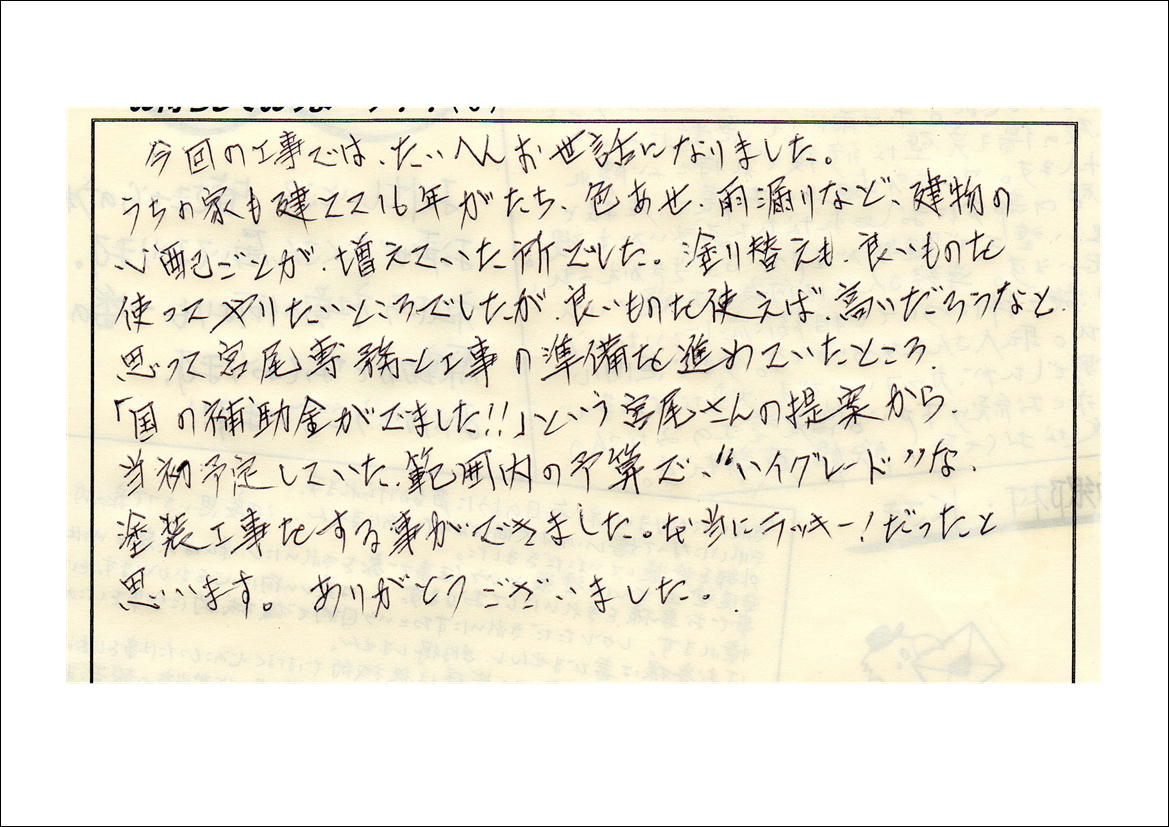 今回の工事では、たいへんお世話になりました。
うちの家も建てて16年がたち、色あせ、雨漏りなど、建物の
心配ごとが、増えていた所でした。塗り替えも、良いものを
使ってやりたいところでしたが、良いものを使えば、高いだろうなと
思って宮尾専務と工事の準備を進めていたところ、
「国の補助金がでました!!」という宮尾さんの提案から
当初予定していた、範囲内の予算で、“ハイグレード”な、
塗装工事をする事ができました。本当にラッキー!だったと
思います。ありがとうございました。